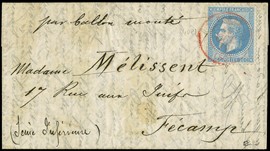 par Ballon monté
Madame Mélissent
17 Rue aux Juifs
Fécamp
(Seine Inférieure)